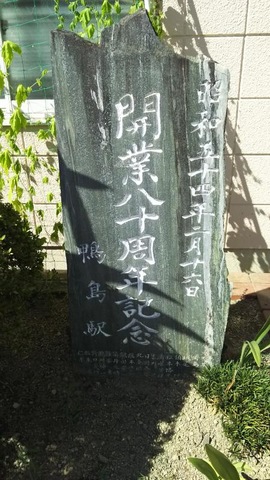 昭和五十四年二月十六日
開業八十周年記念
鴨島駅